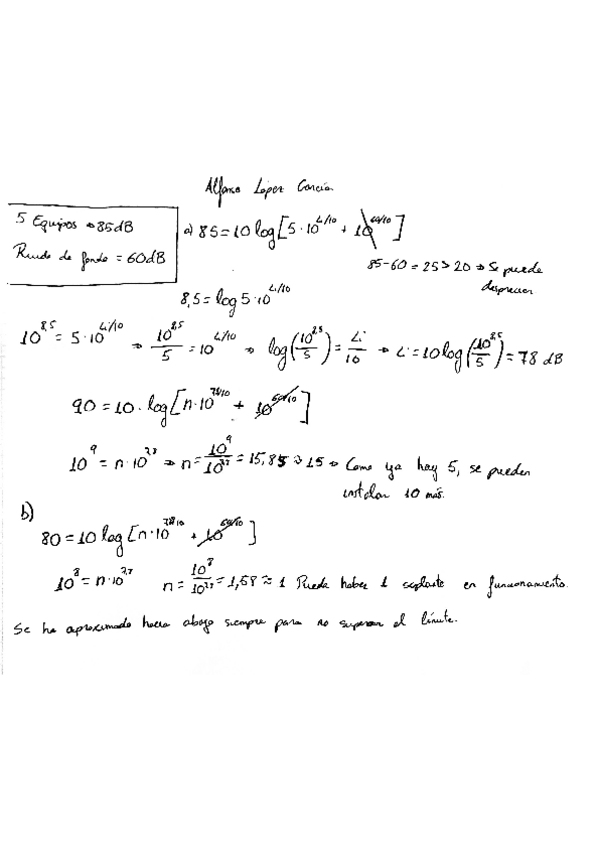 Alfonso López García
5 Equipos → 85dB
Ruido de fondo = 60dB
a) 85 = 10 log [5·10^(Li/10) + 10^(60/10)]
85-60 = 25 > 20 → Se puede
despreciar
8,5 = log 5·10^(Li/10)
10^8,5 = 5·10^(Li/10) → 10^8,5/5 = 10^(Li/10) → log(10^8,5/5) = Li/10 → Li = 10 log(10^8,5/5) = 78 dB
90 = 10·log[n·10^(78/10) + 10^(60/10)]
10^9 = n·10^7,8 → n = 10^9/10^7,8 = 15,85 ≈ 15 → Como ya hay 5, se pueden
instalar 10 más.
b)
80 = 10 log [n·10^(78/10) + 10^(60/10)]
10^8 = n·10^7,8 n = 10^8/10^7,8 = 1,58 ≈ 1 Puede haber 1 soplante en funcionamiento.
Se ha aproximado hacia abajo siempre para no superar el límite.